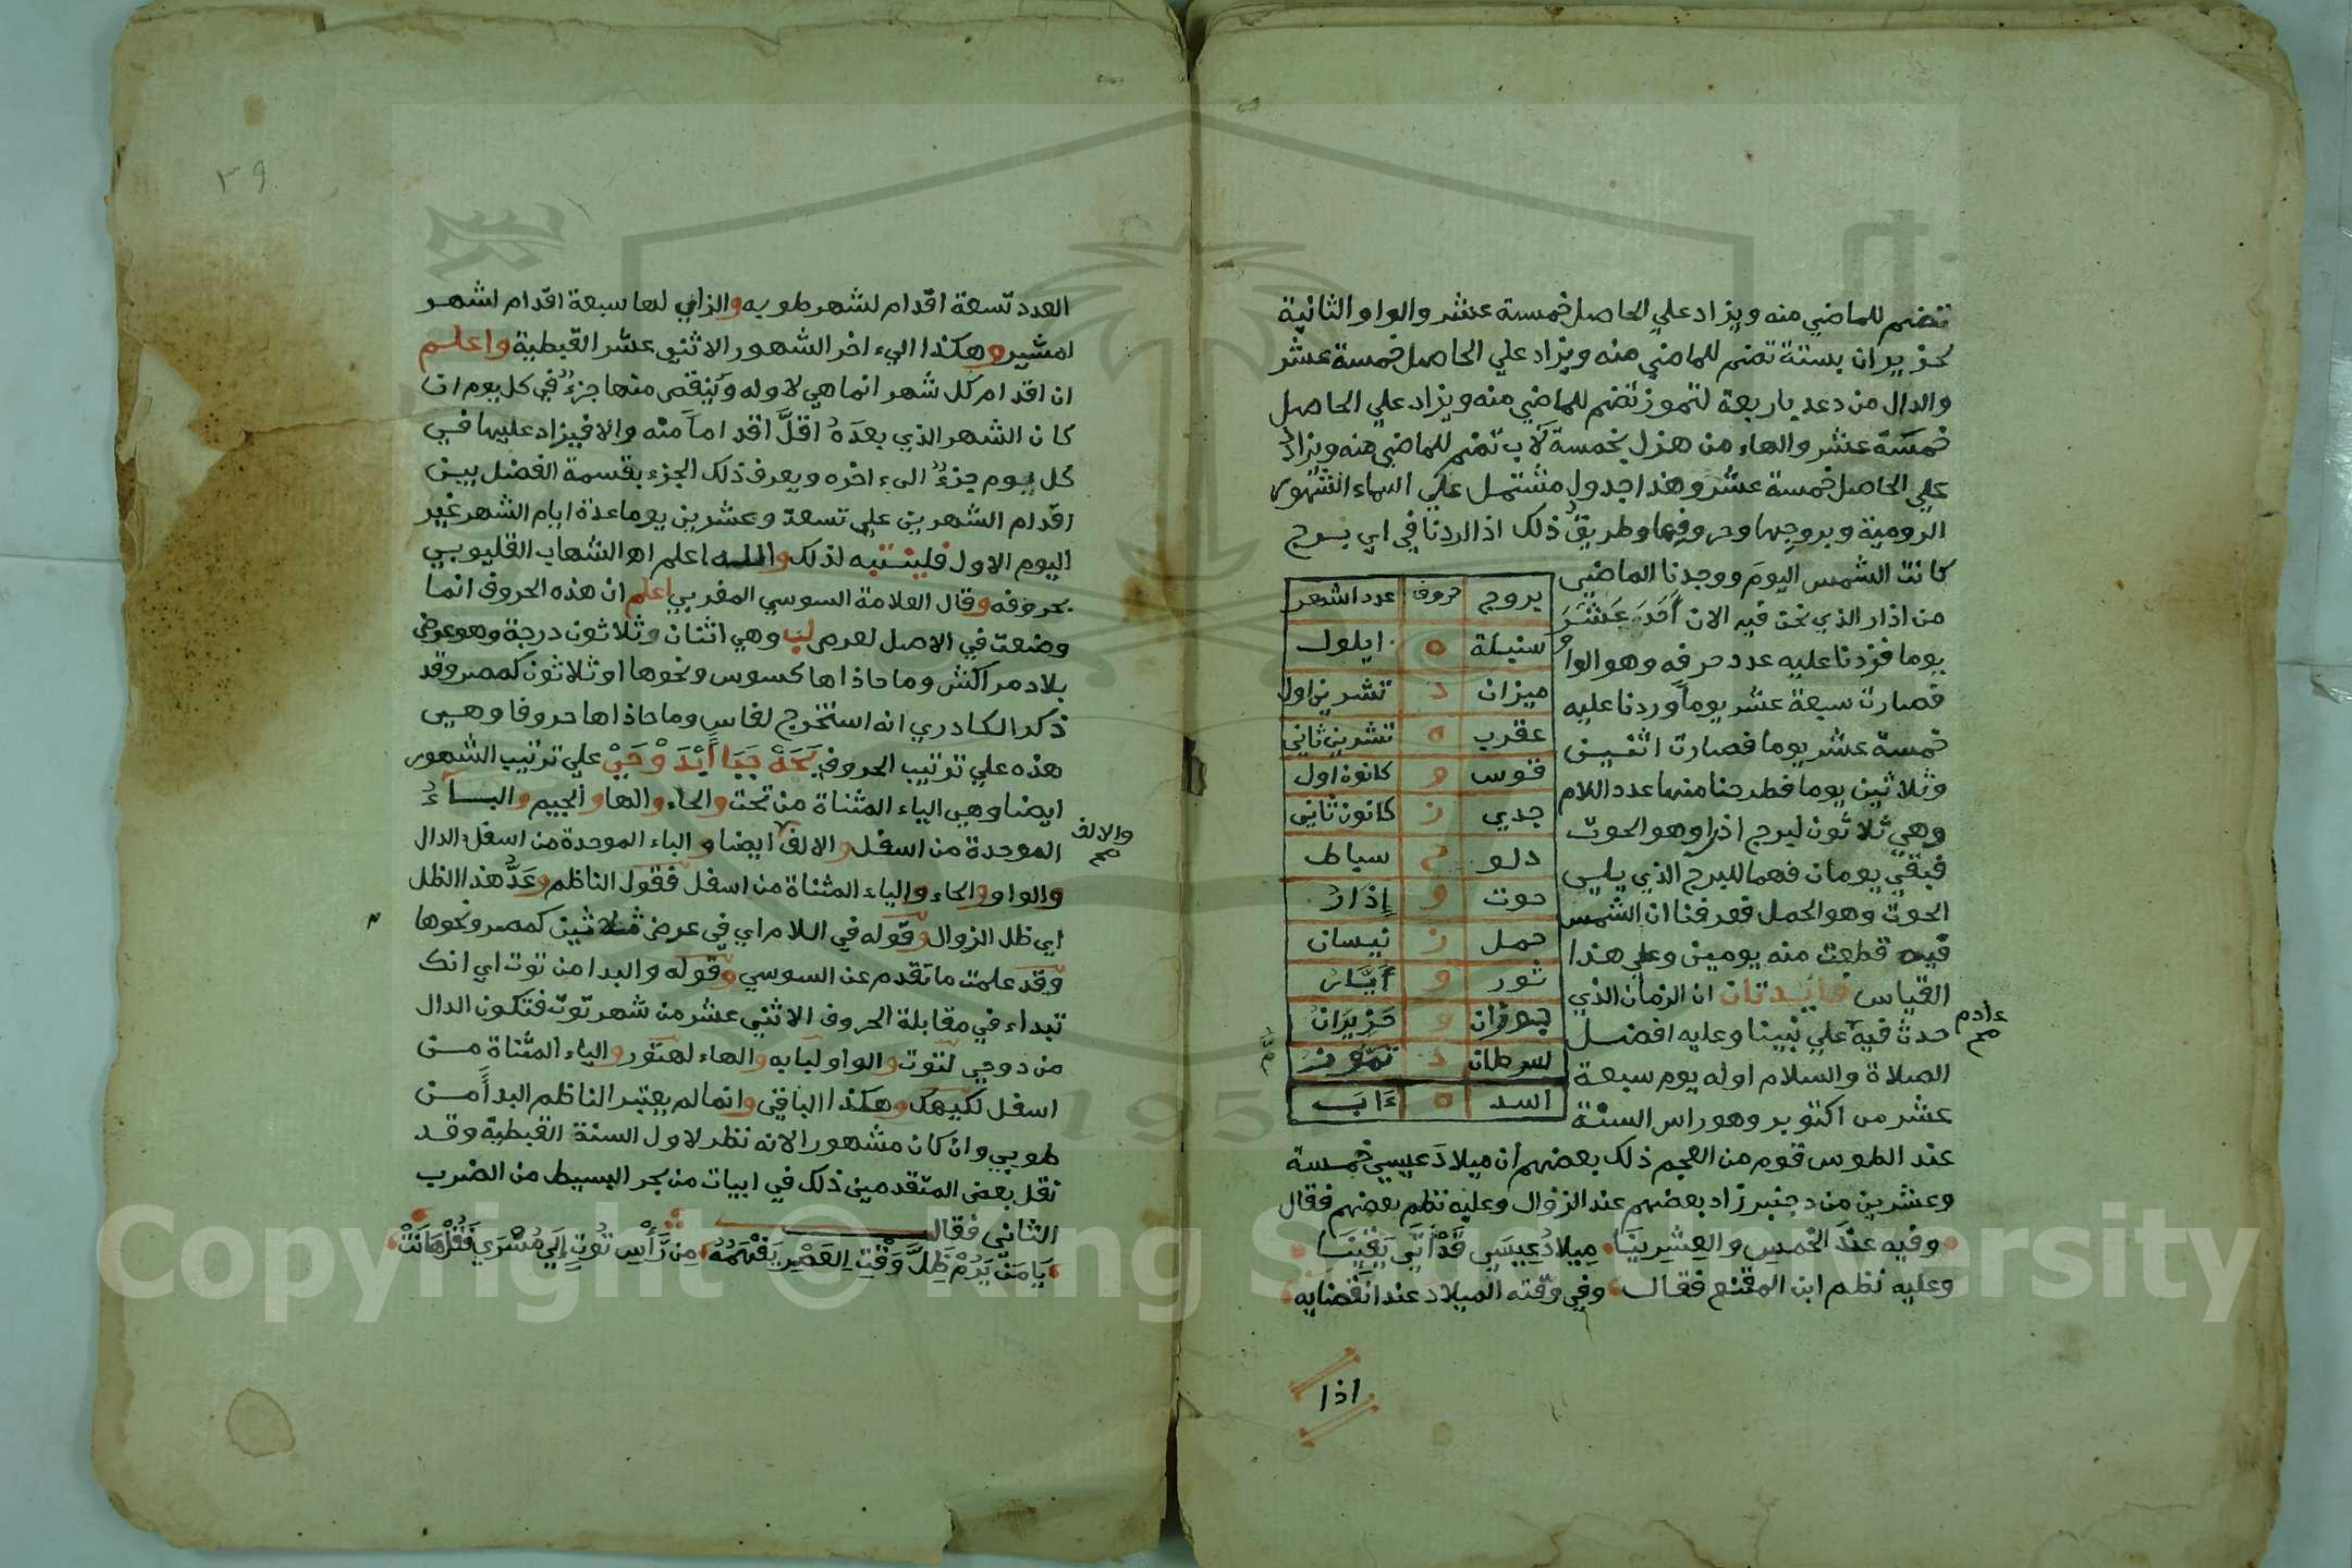 تضم للماضي منه ويزاد علي الحاصل خمسة عشر والواو الثانية
لحزيران بستة تضم للماضي منه ويزاد علي الحاصل خمسة عشر
والدال من دعد باربعة لتموز تضم للماضي منه ويزاد علي الحاصل
خمسة عشر والهاء من هزل بخمسة لآب تضم للماضي منه ويزاد
علي الحاصل خمسة عشر وهذا جدول مشتمل علي اسماء الشهور
الرومية وبروجها وحروفها وطريق ذلك اذا اردنا في اي برج
كانت الشمس اليوم ووجدنا الماضي
من اذار الذي نحن فيه الان أَحَدَ عَشَرَ
يوما فزدنا عليه عدد حرفه وهو الواو
فصارت سبعة عشر يوماً وزدنا عليه
خمسة عشر يوما فصارت اثنين
وثلاثين يوما فطرحنا منها عدد اللام
وهي ثلاثون لبرج اذار وهو الحوت
فبقي يومان فهما للبرج الذي يلي
الحوت وهو الحمل فعرفنا ان الشمس
فيه قطعت منه يومين وعلي هذا
القياس فايدتان ان الزمان الذي
حدث فيه علي نبينا وعليه افضل
ءادم
صح
الصلاة والسلام اوله يوم سبعة
عشر من اكتوبر وهو راس السنة
بروج حروف عدد اشهر
سنبلة ه ايلول
ميزان د تشرين اول
عقرب ه تشرين ثاني
قوس و كانون اول
جدي ز كانون ثاني
دلو ح سباط
حوت و إذار
حمل ز نيسان
ثور و أيَّار
جوزان و حَزِيرَانُ
سرطان د تموز
اسد ه ءَابَ
عند الطوس قوم من العجم ذلك بعضهم أن ميلاد عيسي خمسة
وعشرين من دجنبر زاد بعضهم عند الزوال وعليه نظم بعضهم فقال
وفيه عندَ الخمسِ والعِشرِينَا مِيلادُ عِيسَي قَدْ أتَي يَقِينَا
وعليه نظم ابن المقنع فقال وفي وقته الميلاد عند انقضايه
اذا
٣٩
العدد تسعة اقدام لشهر طوبه والزاي لها سبعة اقدام لشهر
امشير وهكذا الي ءاخر الشهور الاثني عشر القبطية واعلم
ان اقدام كل شهر انما هي لاوله وينقص منها جزءٌ في كل يوم ان
كان الشهر الذي بعدَهُ اقلَّ اقداماً منه والا فيزاد عليها في
كل يوم جزءٌ الي ءاخره ويعرف ذلك الجزء بقسمة الفضل بين
اقدام الشهرين علي تسعة وعشرين يوما عدة ايام الشهر غير
اليوم الاول فليتنبه لذلك والله اعلم اهـ الشهاب القليوبي
بحروفه وقال العلامة السوسي المغربي اعلم ان هذه الحروف انما
وضعت في الاصل لعرض لب وهي اثنان وثلاثون درجة وهو عرض
بلاد مراكش وما حاذاها كسوس ونحوها او ثلاثون كمصر وقد
ذكر الكادري انه استخرج لفاس وما حاذاها حروفا وهي
هذه علي ترتيب الحروف يَحَهْ جَبَا أَبْدَ وْ حَيْ علي ترتيب الشهور
ايضا وهي الياء المثناة من تحت والحاء والها والجيم والباءُ
الموحدة من اسفل والالف ايضا والباء الموحدة من اسفل الدال
والالف
صح
والواو والحاء والياء المثناة من اسفل فقول الناظم وعَدُّ هذا الظل
اي ظل الزوال وقوله في اللام اي في عرض ثلاثين كمصر ونحوها
وقد علمت ما تقدم عن السوسي وقوله والبدا من توت اي انك
تبداء في مقابلة الحروف الاثني عشر من شهر توت فتكون الدال
من دوحي لتوت والواو لبابه والهاء لهتور والياء المثناة من
اسفل لكيهك وهكذا الباقي وانما لم يعتبر الناظم البدأ من
طوبي وان كان مشهورا لانه نظر لاول السنة القبطية وقد
نقل بعض المتقدمين ذلك في ابيات من بحر البسيط من الضرب
الثاني فقال
يَا مَن يَرُمْ ظِلَّ وَقْتِ العَصْرِ يَفْهَمُهُ مِن رَّأْسِ تُوتٍ إِلَي مُسْرَي
Copyright © King Saud University
195